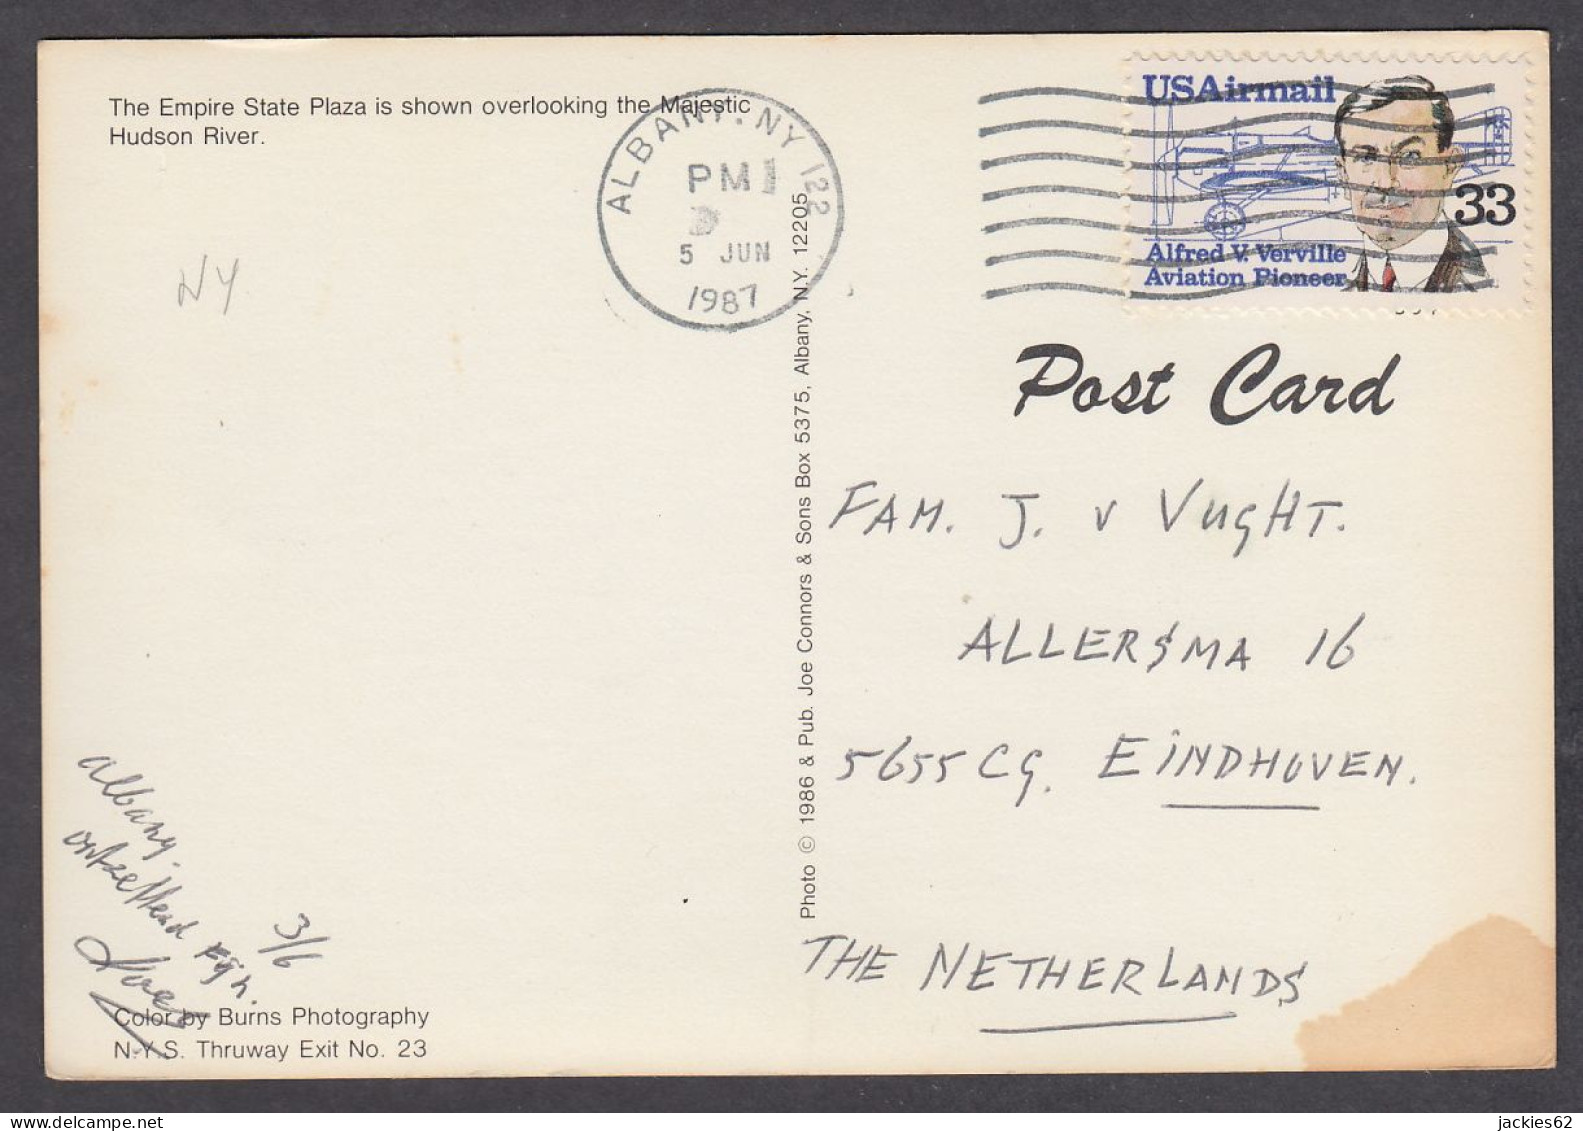 The Empire State Plaza is shown overlooking the Majestic
Hudson River.
ALBANY. NY 122
PM
5 JUN
1987
USAirmail
33
Alfred V. Verville
Aviation Pioneer
NY
Post Card
Photo © 1986 & Pub. Joe Connors & Sons Box 5375, Albany, N.Y. 12205
FAM. J. v VUgHT.
ALLERSMA 16
5655 Cg. EINDHOVEN.
THE NETHERLANDS
Albany.
3/6
Color by Burns Photography
N.Y.S. Thruway Exit No. 23
www.delcampe.net
jackies62